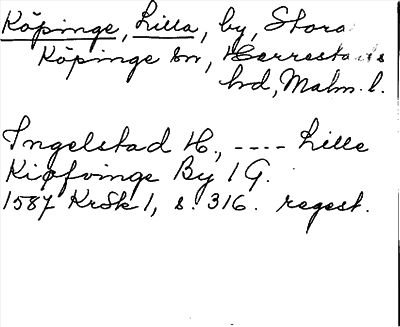 Köpinge, Lilla, by, Stora
Köpinge sn, Herrestads
hd, Malm. l.
Ingelstad H., ---- Lille
Kiøfvinge By 1 G.
1587 KrSk 1, s. 316. regest.